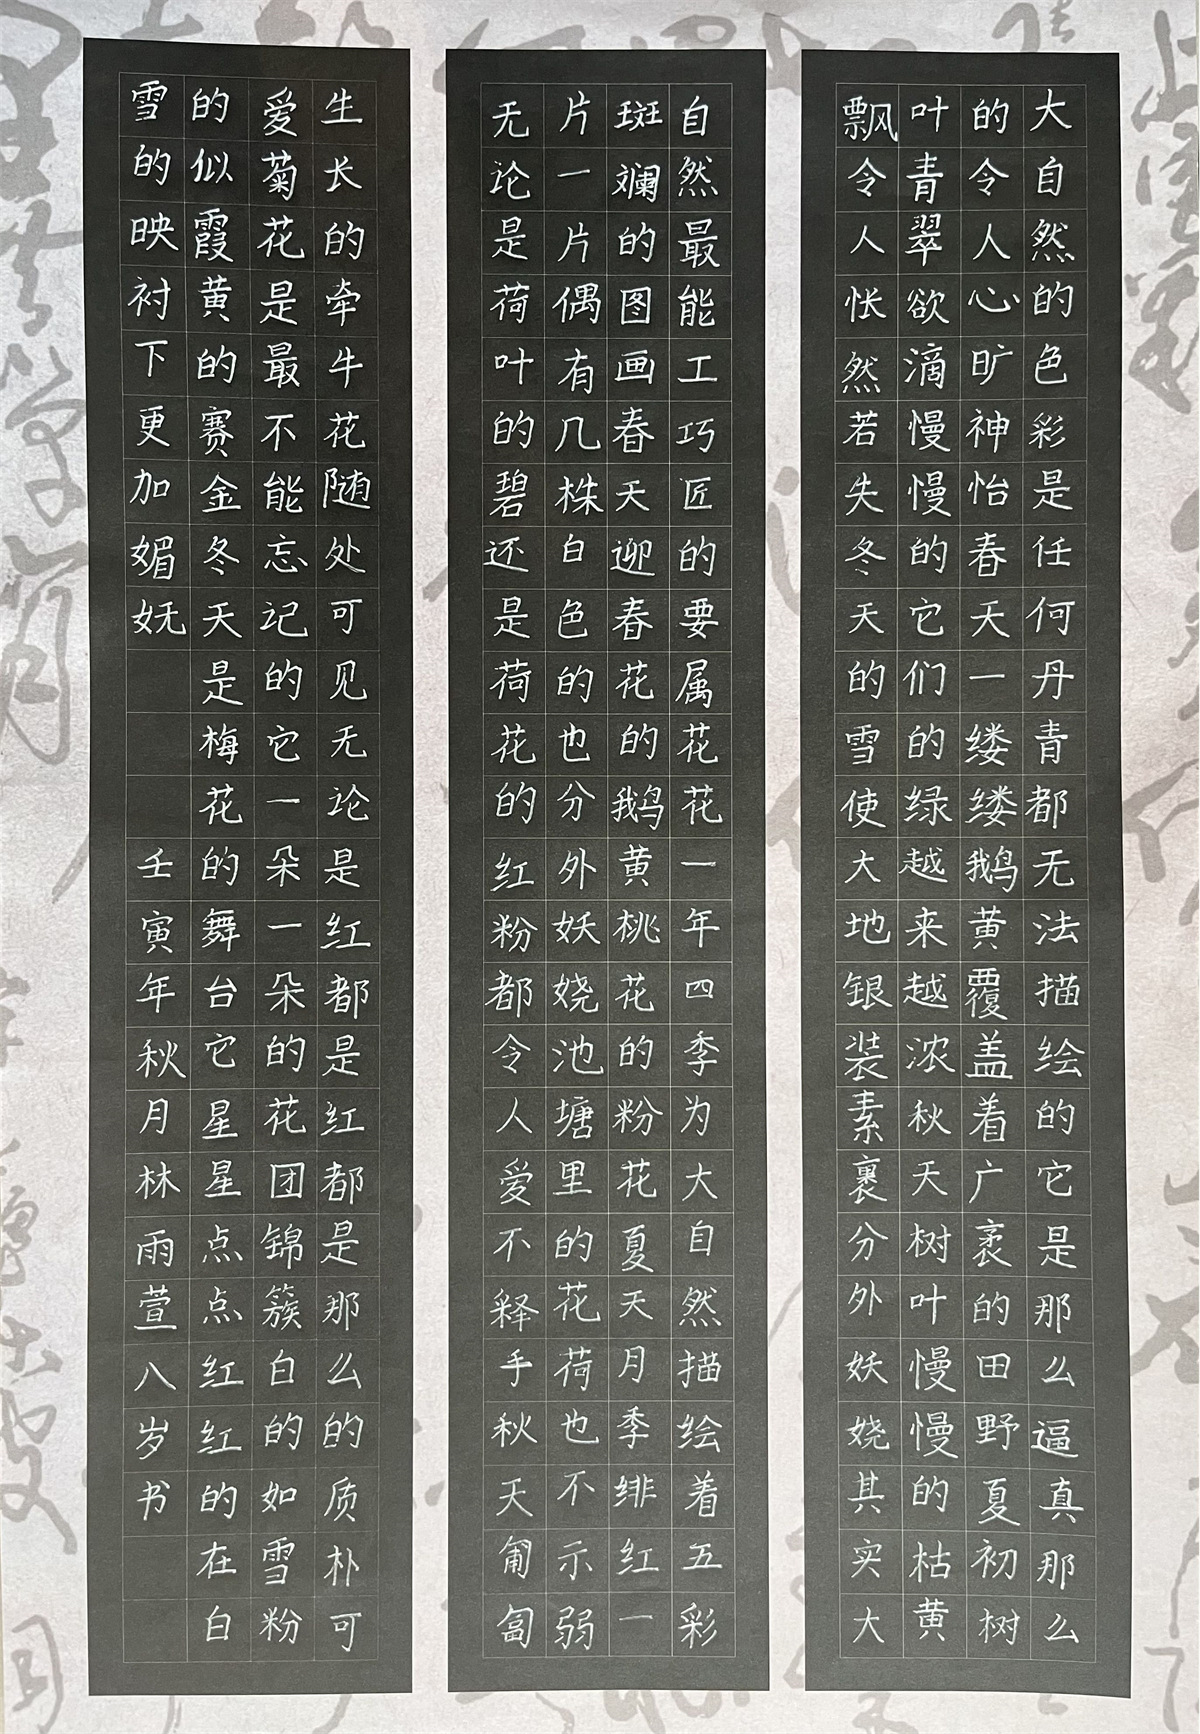 大自然的色彩是任何丹青都无法描绘的它是那么逼真那么
的令人心旷神怡春天一缕缕鹅黄覆盖着广袤的田野夏初树
叶青翠欲滴慢慢的它们的绿越来越浓秋天树叶慢慢的枯黄
飘令人怅然若失冬天的雪使大地银装素裹分外妖娆其实大
自然最能工巧匠的要属花花一年四季为大自然描绘着五彩
斑斓的图画春天迎春花的鹅黄桃花的粉花夏天月季绯红一
片一片偶有几株白色的也分外妖娆池塘里的花荷也不示弱
无论是荷叶的碧还是荷花的红粉都令人爱不释手秋天匍匐
生长的牵牛花随处可见无论是红都是红都是那么的质朴可
爱菊花是最不能忘记的它一朵一朵的花团锦簇白的如雪粉
的似霞黄的赛金冬天是梅花的舞台它星星点点红红的在白
雪的映衬下更加媚妩 壬寅年秋月林雨萱八岁书